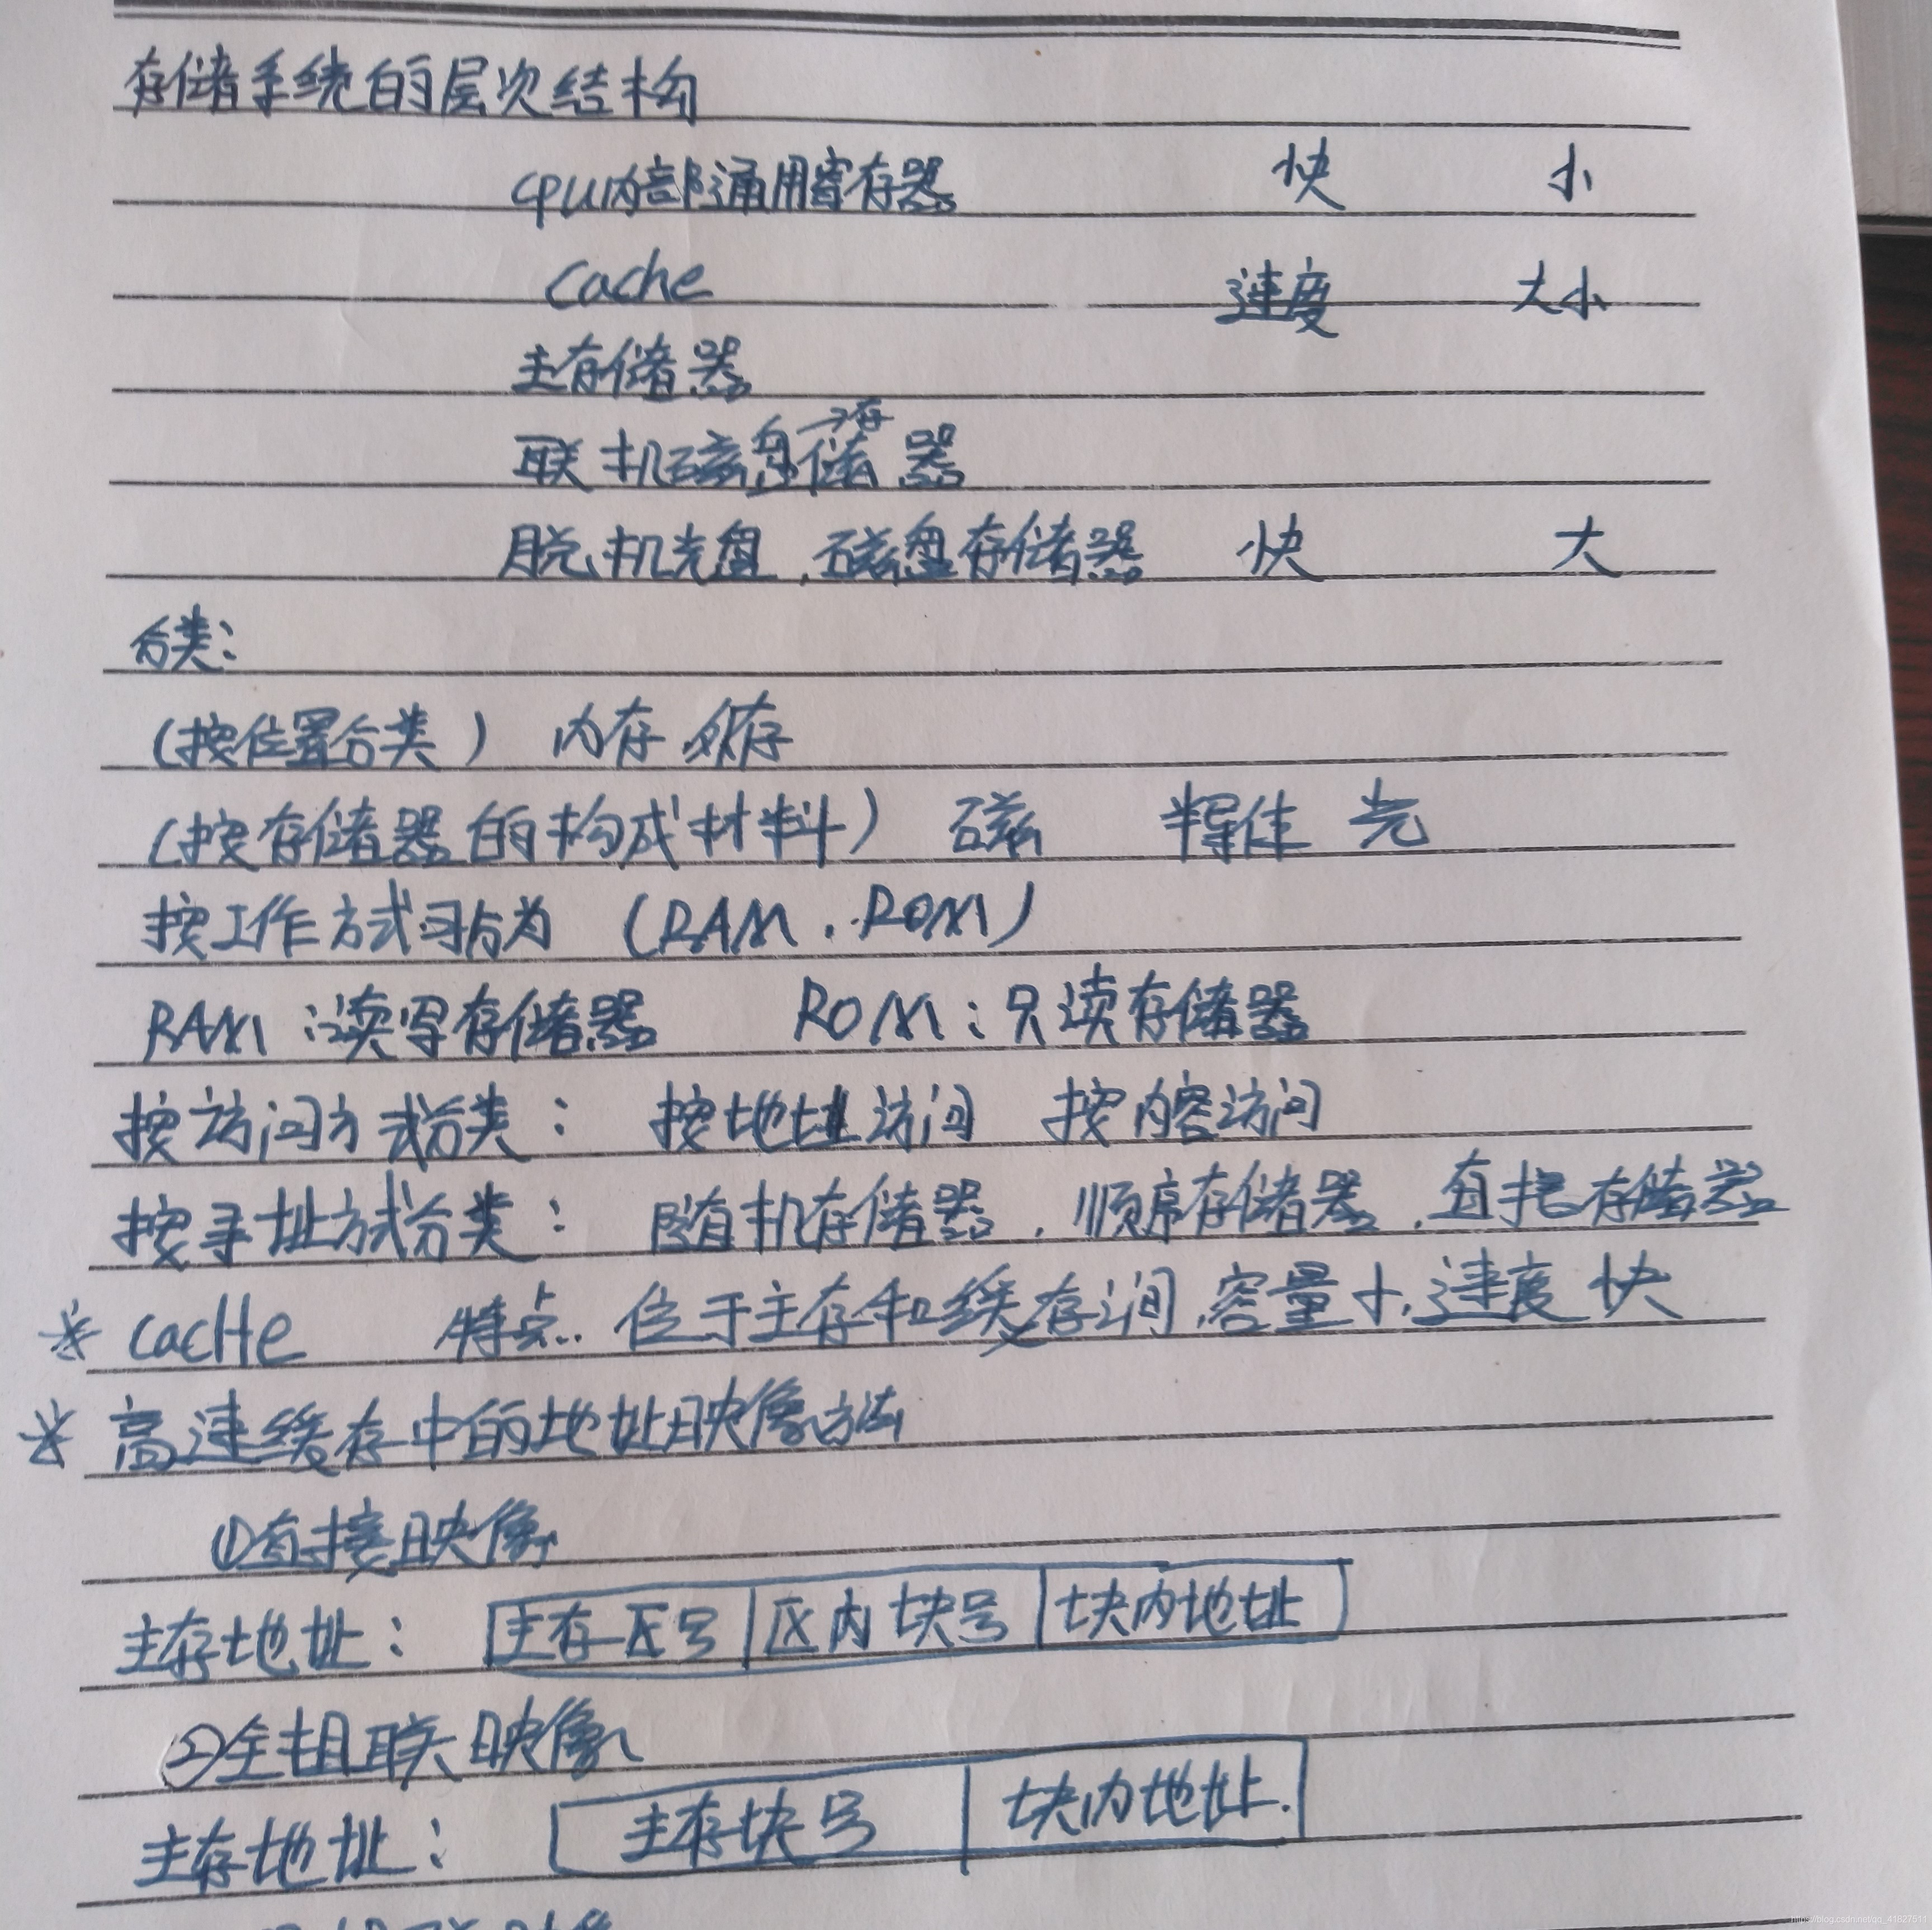 存储系统的层次结构
CPU内部通用寄存器 快 小
Cache 速度 大小
主存储器
联机磁盘存储器
脱机光盘,磁盘存储器 快 大
分类:
(按位置分类) 内存 外存
(按存储器的构成材料) 磁 半导体 光
按工作方式可分为 (RAM.ROM)
RAM:读写存储器 ROM:只读存储器
按访问方式分类: 按地址访问 按内容访问
按寻址方式分类: 随机存储器,顺序存储器,直接存储器
* cacHe 特点.. 位于主存和缓存之间,容量小,速度快
* 高速缓存中的地址映像方法
①直接映像
主存地址: 主存区号 区内块号 块内地址
②全相联映像
主存地址: 主存块号 块内地址.